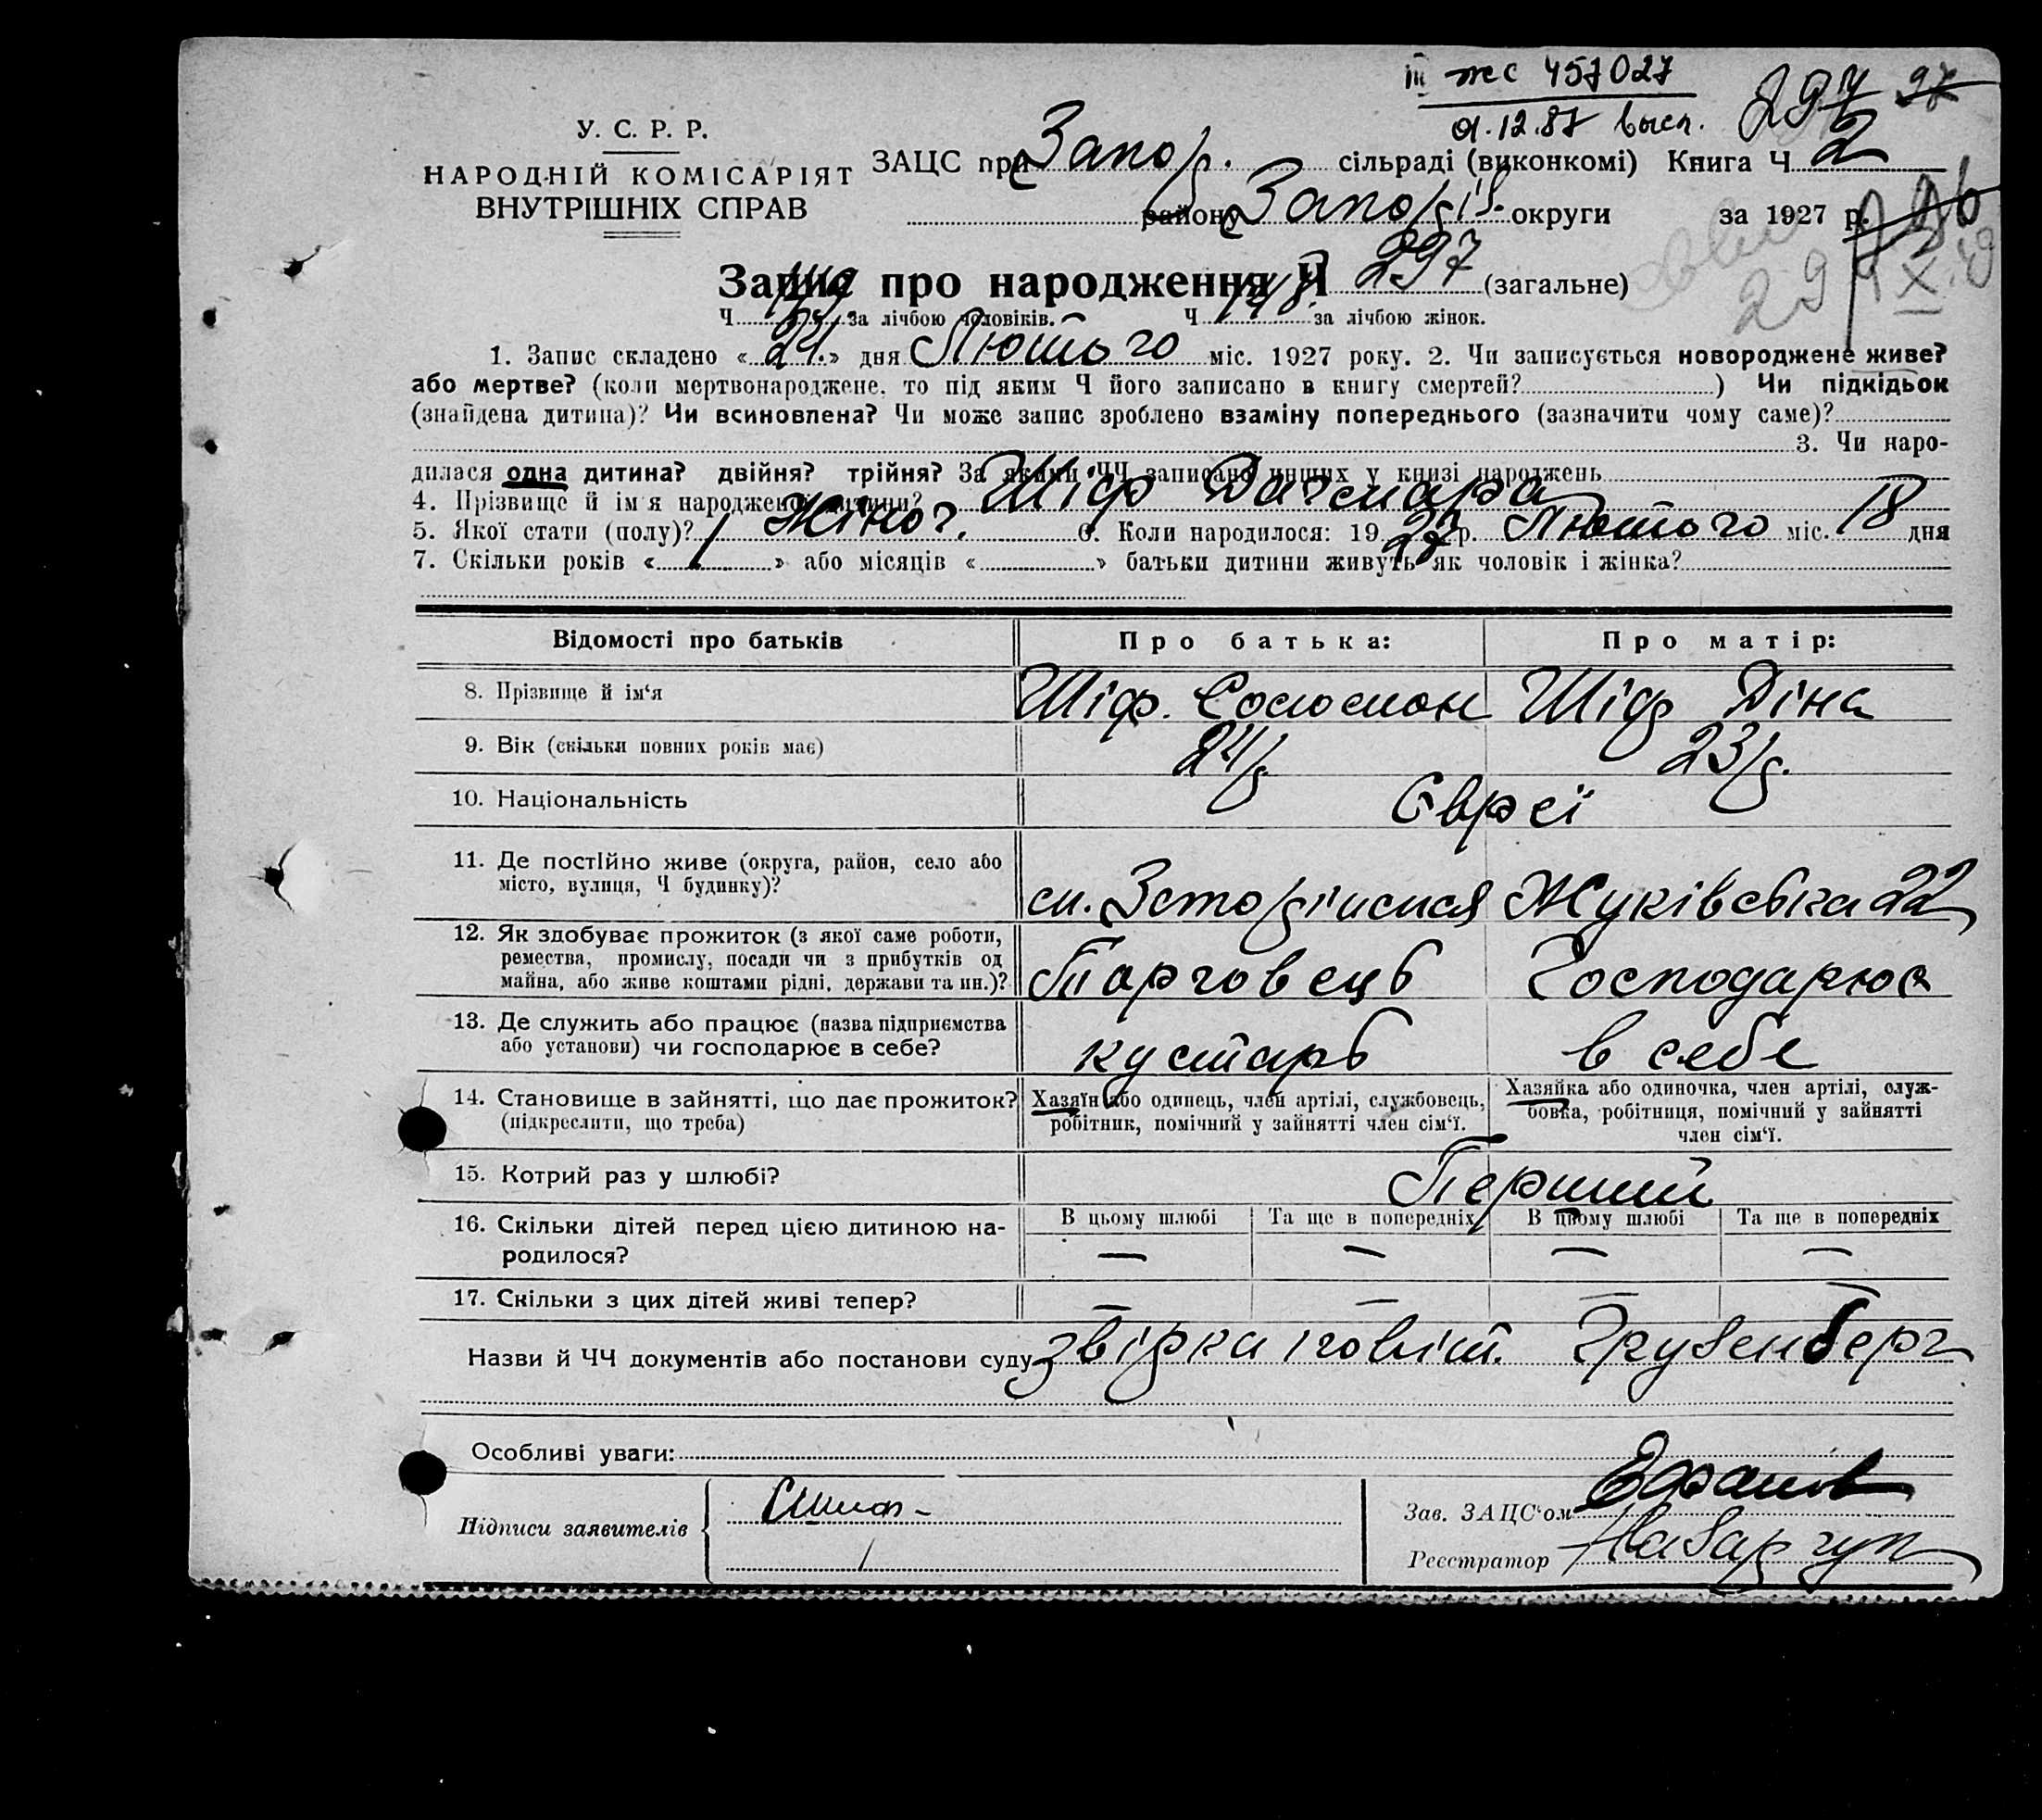 ІІІ жс 457027
01.12.87 высл. 297
У. С. Р. Р.
НАРОДНІЙ КОМІСАРІЯТ
ВНУТРІШНІХ СПРАВ
ЗАЦС при Запор. сільраді (виконкомі) Книга Ч 2
району Запоріз. округи за 1927 р.
Запис про народження Ч 297 (загальне)
Ч 149 за лічбою чоловіків. Ч 148 за лічбою жінок.
1. Запис складено « 21. » дня Лютого міс. 1927 року. 2. Чи записується новороджене живе?
або мертве? (коли мертвонароджене, то під яким Ч його записано в книгу смертей? ) Чи підкідьок
(знайдена дитина)? Чи всиновлена? Чи може запис зроблено взаміну попереднього (зазначити чому саме)?
3. Чи наро-
дилася одна дитина? двійня? трійня? За якими ЧЧ записано инших у книзі народжень
4. Прізвище й ім'я народженої дитини? Шіф Дагмара
5. Якої стати (полу)? Жіноч. 6. Коли народилося: 19 27 р. Лютого міс. 18 дня
7. Скільки років « 1 » або місяців « » батьки дитини живуть як чоловік і жінка?
Відомості про батьків Про батька: Про матір:
8. Прізвище й ім'я Шіф. Соломон Шіф Діна
9. Вік (скільки повних років має) 24/р. 23/р.
10. Національність Євреї
11. Де постійно живе (округа, район, село або
місто, вулиця, Ч будинку)?
Жуківська 22
12. Як здобуває прожиток (з якої саме роботи,
ремества, промислу, посади чи з прибутків од
майна, або живе коштами рідні, держави та ин.)?
Торговець Господарює
13. Де служить або працює (назва підприємства
або установи) чи господарює в себе?
кустарь в себе
14. Становище в зайнятті, що дає прожиток?
(підкреслити, що треба)
Хазяїн або одинець, член артілі, службовець,
робітник, помічний у зайнятті член сім'ї.
Хазяйка або одиночка, член артілі, служ-
бовка, робітниця, помічний у зайнятті
член сім'ї.
15. Котрий раз у шлюбі? Перший
16. Скільки дітей перед цією дитиною на-
родилося?
В цьому шлюбі Та ще в попередніх В цьому шлюбі Та ще в попередніх
— — — —
17. Скільки з цих дітей живі тепер? — — — —
Назви й ЧЧ документів або постанови суду звірка Грузенберг
Особливі уваги:
Підписи заявителів
Зав. ЗАЦС'ом
Реєстратор